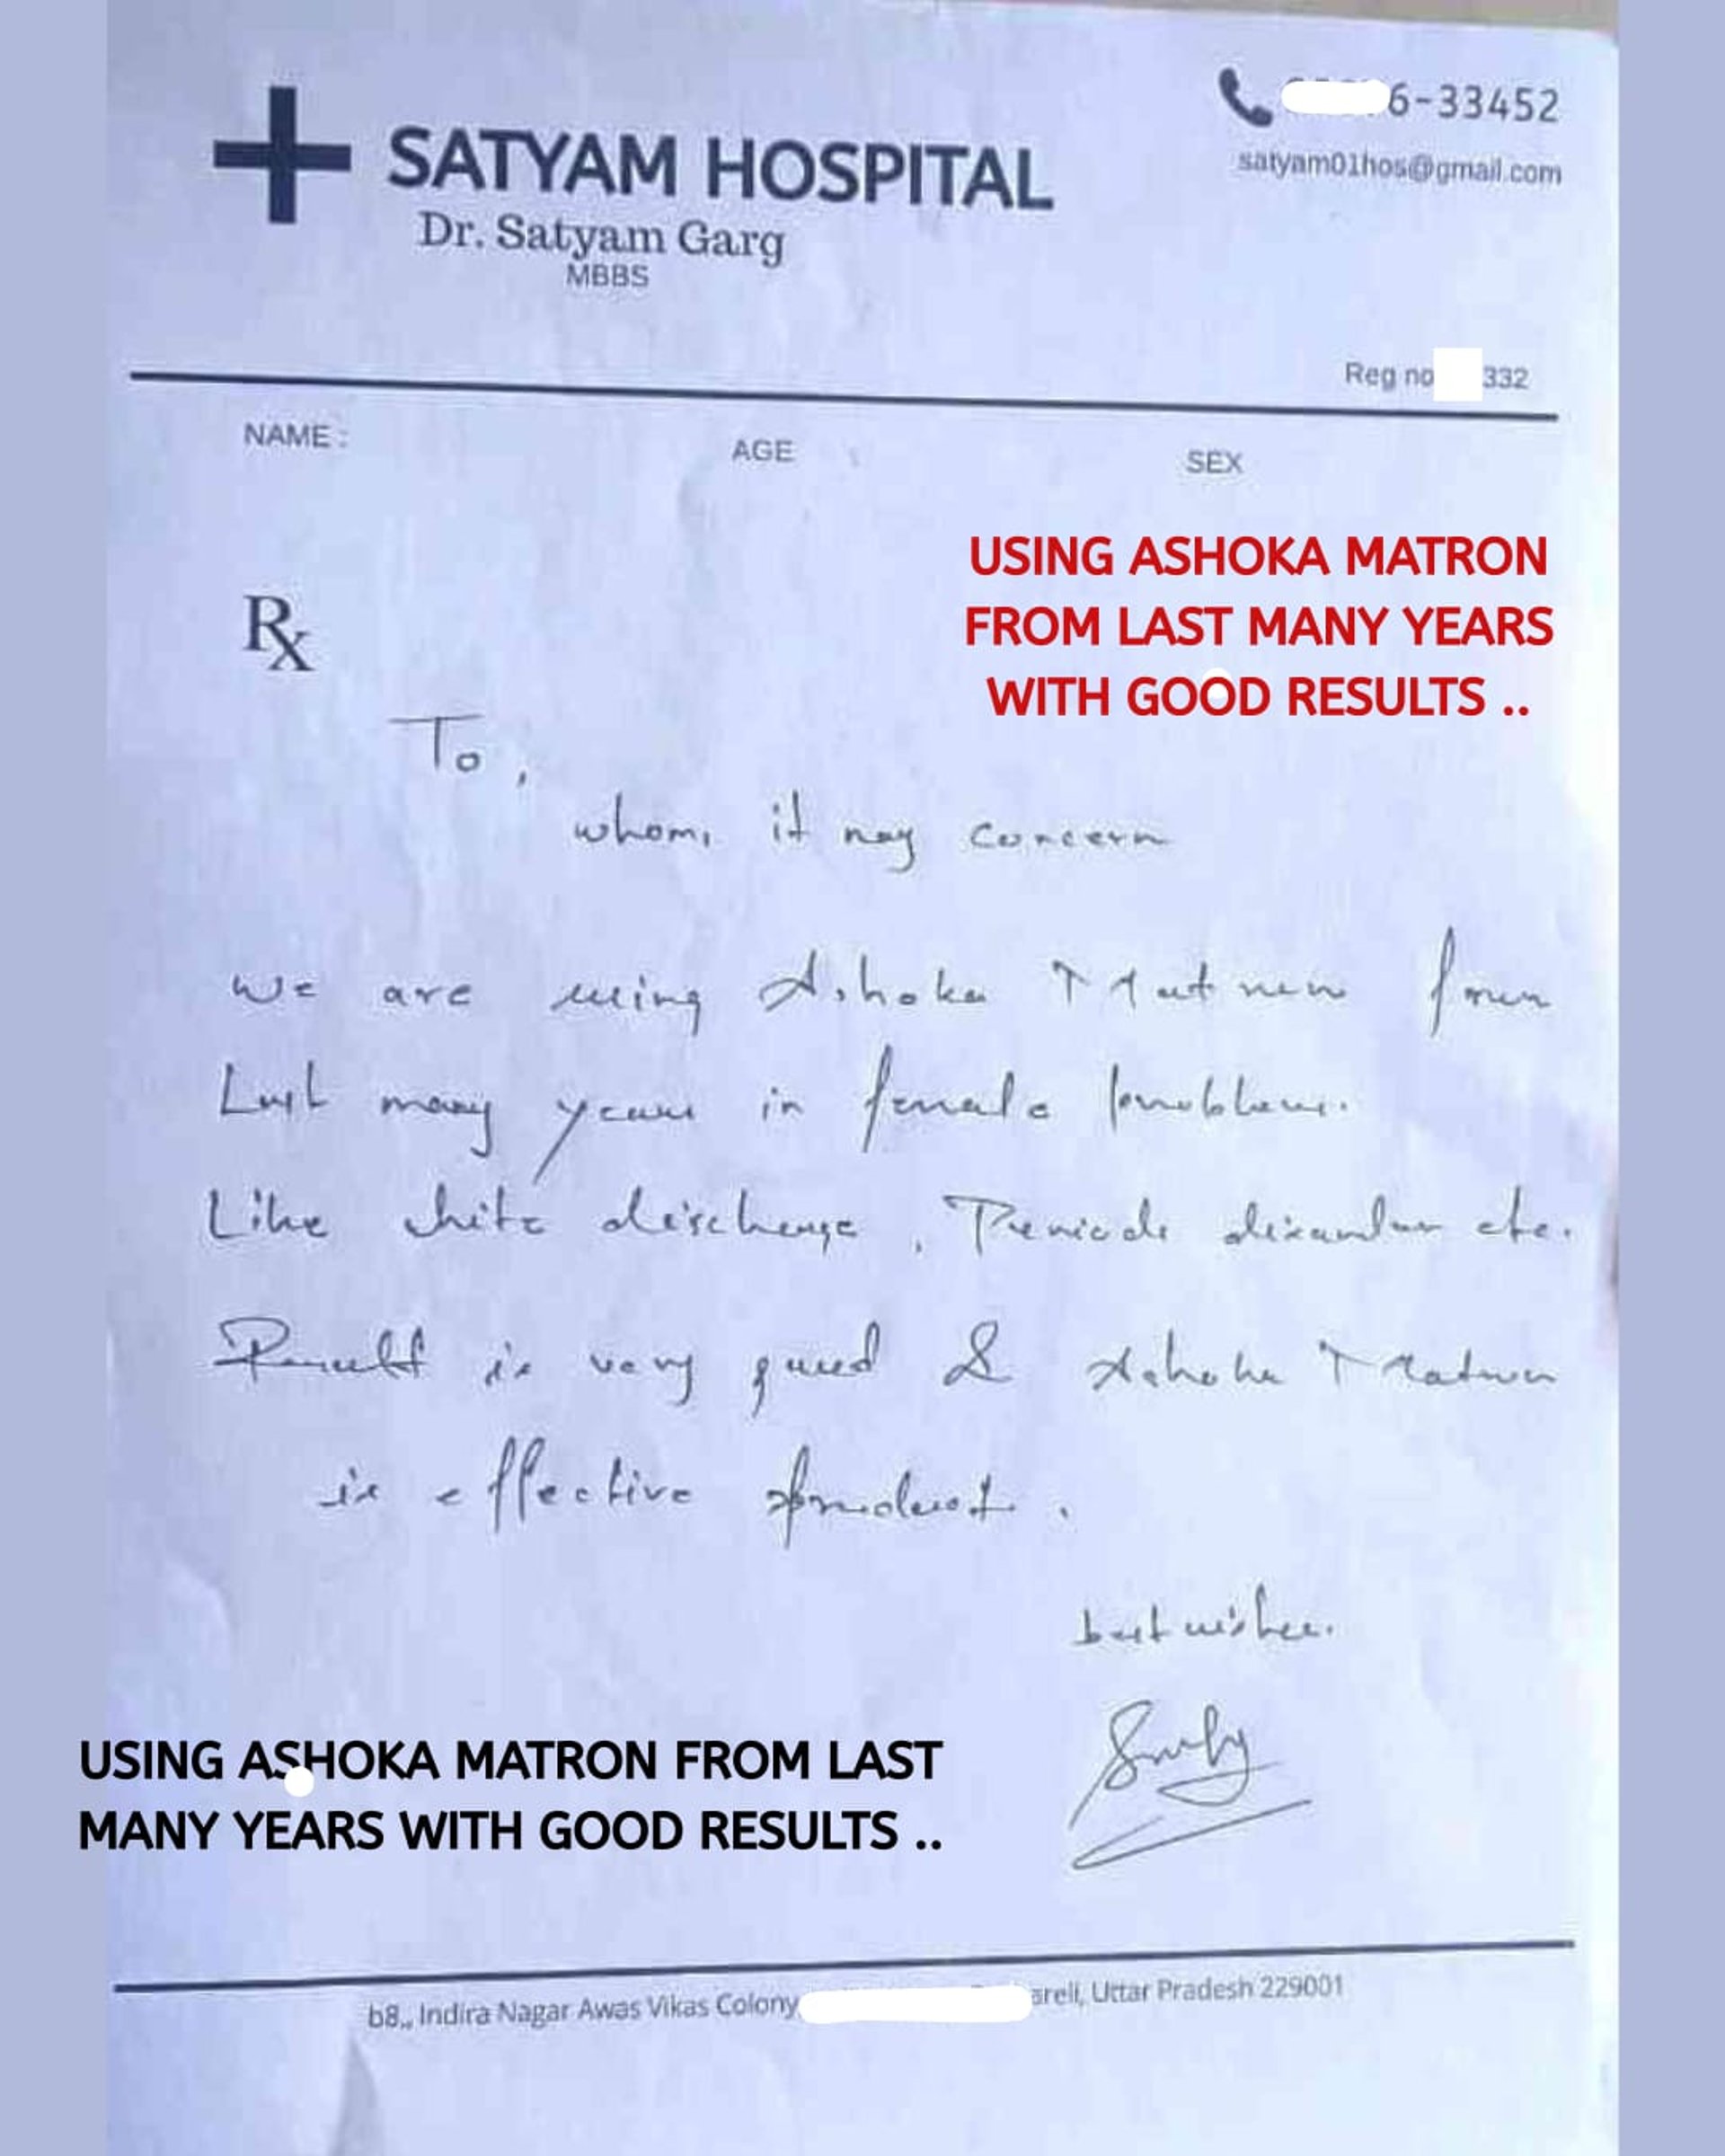 6-33452
satyam01hos@gmail.com
SATYAM HOSPITAL
Dr. Satyam Garg
MBBS
Reg no 332
NAME :
AGE
SEX
USING ASHOKA MATRON
FROM LAST MANY YEARS
WITH GOOD RESULTS ..
Rx
To,
whom, it may concern
we are using Ashoka Matron from
Last many years in female problems.
Like white discharge, Periods disorder etc.
Result is very good & Ashoka Matron
is effective product.
best wishes.
USING ASHOKA MATRON FROM LAST
MANY YEARS WITH GOOD RESULTS ..
b8,, Indira Nagar Awas Vikas Colony, areli, Uttar Pradesh 229001